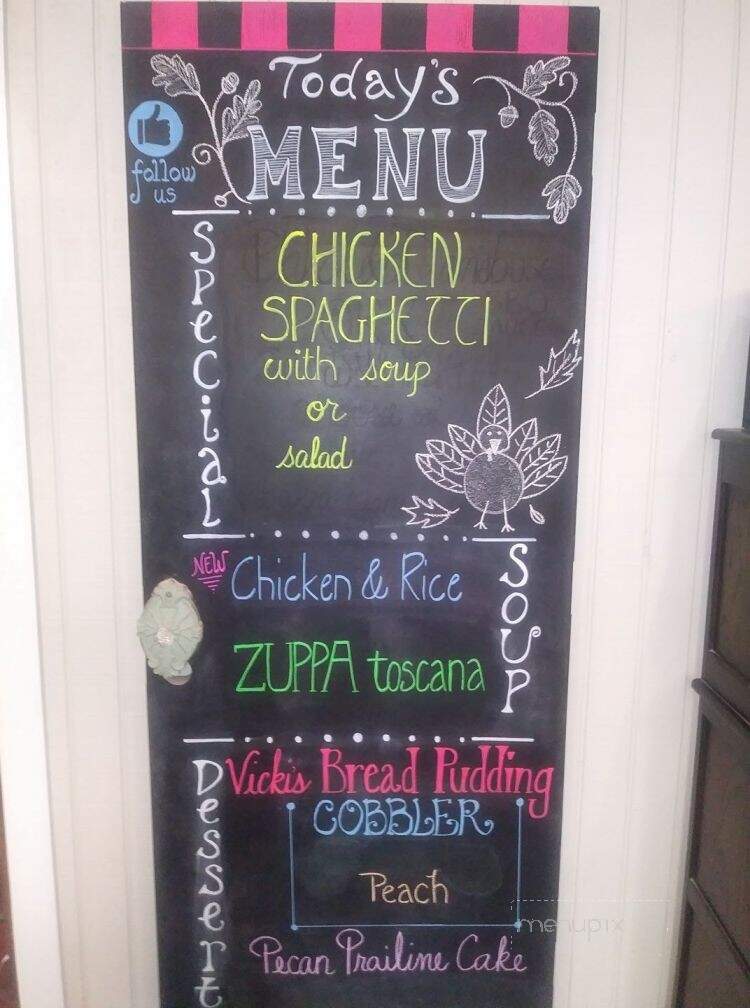 Today's
MENU
follow
us
Special
CHICKEN
SPAGHETTI
with soup
or
salad
SOUP
NEW Chicken & Rice
ZUPPA toscana
Dessert
Vickis Bread Pudding
COBBLER
Peach
Pecan Prailine Cake
menupix